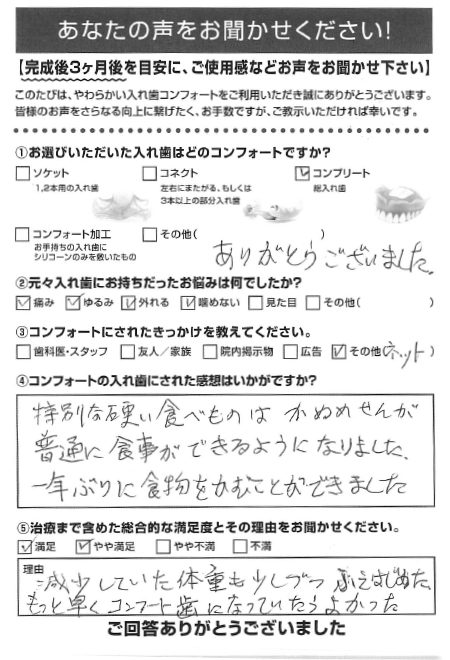 あなたの声をお聞かせください!
【完成後3ヶ月後を目安に、ご使用感などお声をお聞かせ下さい】
このたびは、やわらかい入れ歯コンフォートをご利用いただき誠にありがとうございます。
皆様のお声をさらなる向上に繋げたく、お手数ですが、ご教示いただければ幸いです。
①お選びいただいた入れ歯はどのコンフォートですか?
ソケット
1,2本用の入れ歯
コネクト
左右にまたがる、もしくは
3本以上の部分入れ歯
コンプリート
総入れ歯
コンフォート加工
お手持ちの入れ歯に
シリコーンのみを敷いたもの
その他( )
ありがとうございました。
②元々入れ歯にお持ちだったお悩みは何でしたか?
痛み ゆるみ 外れる 噛めない 見た目 その他( )
③コンフォートにされたきっかけを教えてください。
歯科医・スタッフ 友人/家族 院内掲示物 広告 その他(ネット)
④コンフォートの入れ歯にされた感想はいかがですか?
特別な硬い食べものは かめませんが
普通に食事ができるようになりました、
一年ぶりに食物をかむことができました
⑤治療まで含めた総合的な満足度とその理由をお聞かせください。
満足 やや満足 やや不満 不満
理由
減少していた体重も少しづつ ふえはじめた、
もっと早く コンフート歯になっていたらよかった
ご回答ありがとうございました